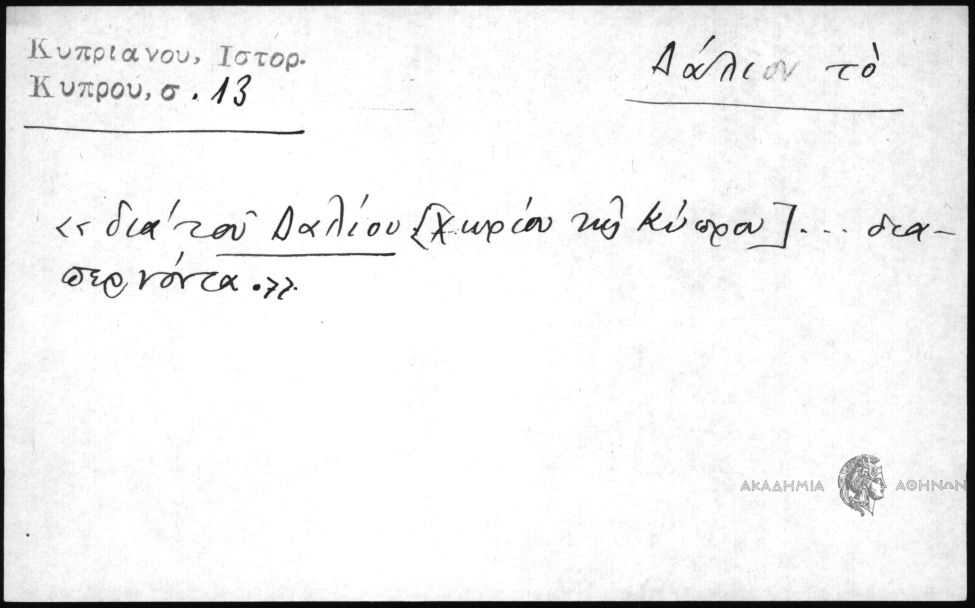 Κυπριανου, Ιστορ.
Κυπρου, σ. 13
Δάλιον τὸ
«διὰ τοῦ Δαλίου [χωρίου τῆς Κύπρου] ... δια-
περνόντα.»
ΑΚΑΔΗΜΙΑ ΑΘΗΝΩΝ